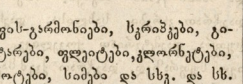 ვის-გარმონიები, სკრიპკები, გი-
ტარები, ფლეიტები,კლორნეტები,
ოტები, სიმები და სხვ. და სხ.